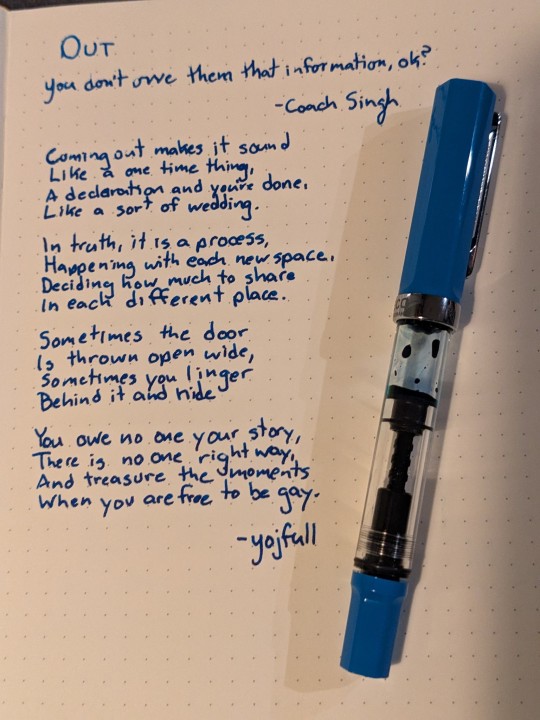 OUT
you don't owe them that information, ok?
-Coach Singh
Coming out makes it sound
Like a one time thing,
A declaration and you're done,
Like a sort of wedding.
In truth, it is a process,
Happening with each new space.
Deciding how much to share
In each different place.
Sometimes the door
Is thrown open wide,
Sometimes you linger
Behind it and hide
You owe no one your story,
There is no one right way,
And treasure the moments
When you are free to be gay.
-yojfull